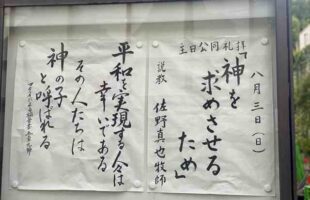 八月三日(日)
主日公同礼拝
「神を
求めさせる
ため」
説教 佐野真也牧師
平和を実現する人は
幸いである
その人たちは
神の子
と呼ばれる